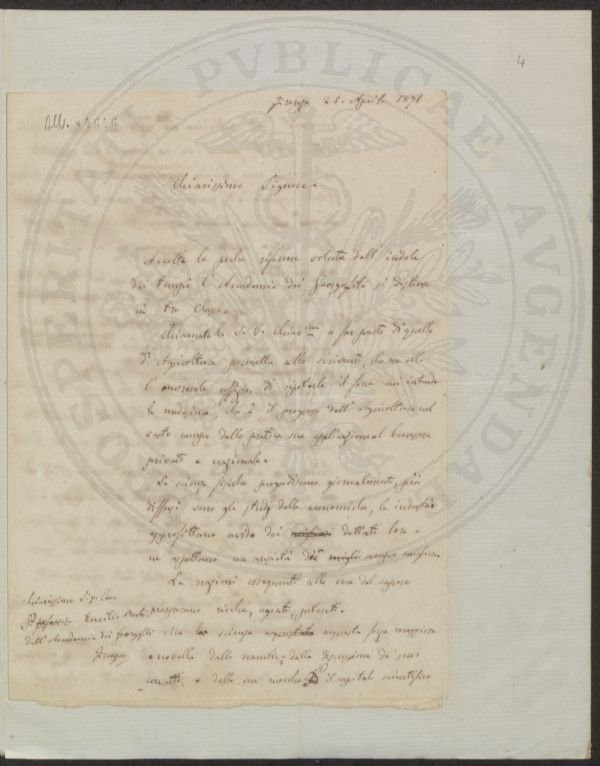 PROSPERITATI PVBLICAE AVGENDAE
4
Firenze 25. Aprile 1871
Chiarissimo Signore.
Accolta la poche riforme volute dall' indole
dei tempi l' Accademia dei Georgofili si distinse
in tre Classi.
Chiamata la S. V. Chiarma a far parte di quella
d' Agricoltura permetta allo scrivente, che ne ebbe
l' onorevole uffizio, di ripeterle il fine cui intende
la medesima, che è il progresso dell' Agricoltura nel
vasto campo della pratica sua applicazione al benessere
privato e nazionale.
Le scienze fisiche progrediscono giornalmente, più
diffusi sono gli studj delle economiche, le industrie
approfittano avide dei migliori dettati loro e
ne aspettano un' anzietà dei migliori
Le nazioni ossequenti alla voce del sapere
prosperano ricche, agiate, potenti.
Ma la scienza acquista forza maggiore
e novella dallo scambio, dalla discussione de' suoi
concetti, e dalla sua il capitale scientifico
Chiarissimo Sig.
Professore Emilio
dell' Accademia dei Georgofili
Firenze